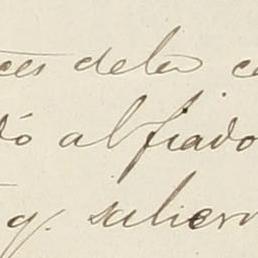 ces dela c
dó alfiado
q. saliero